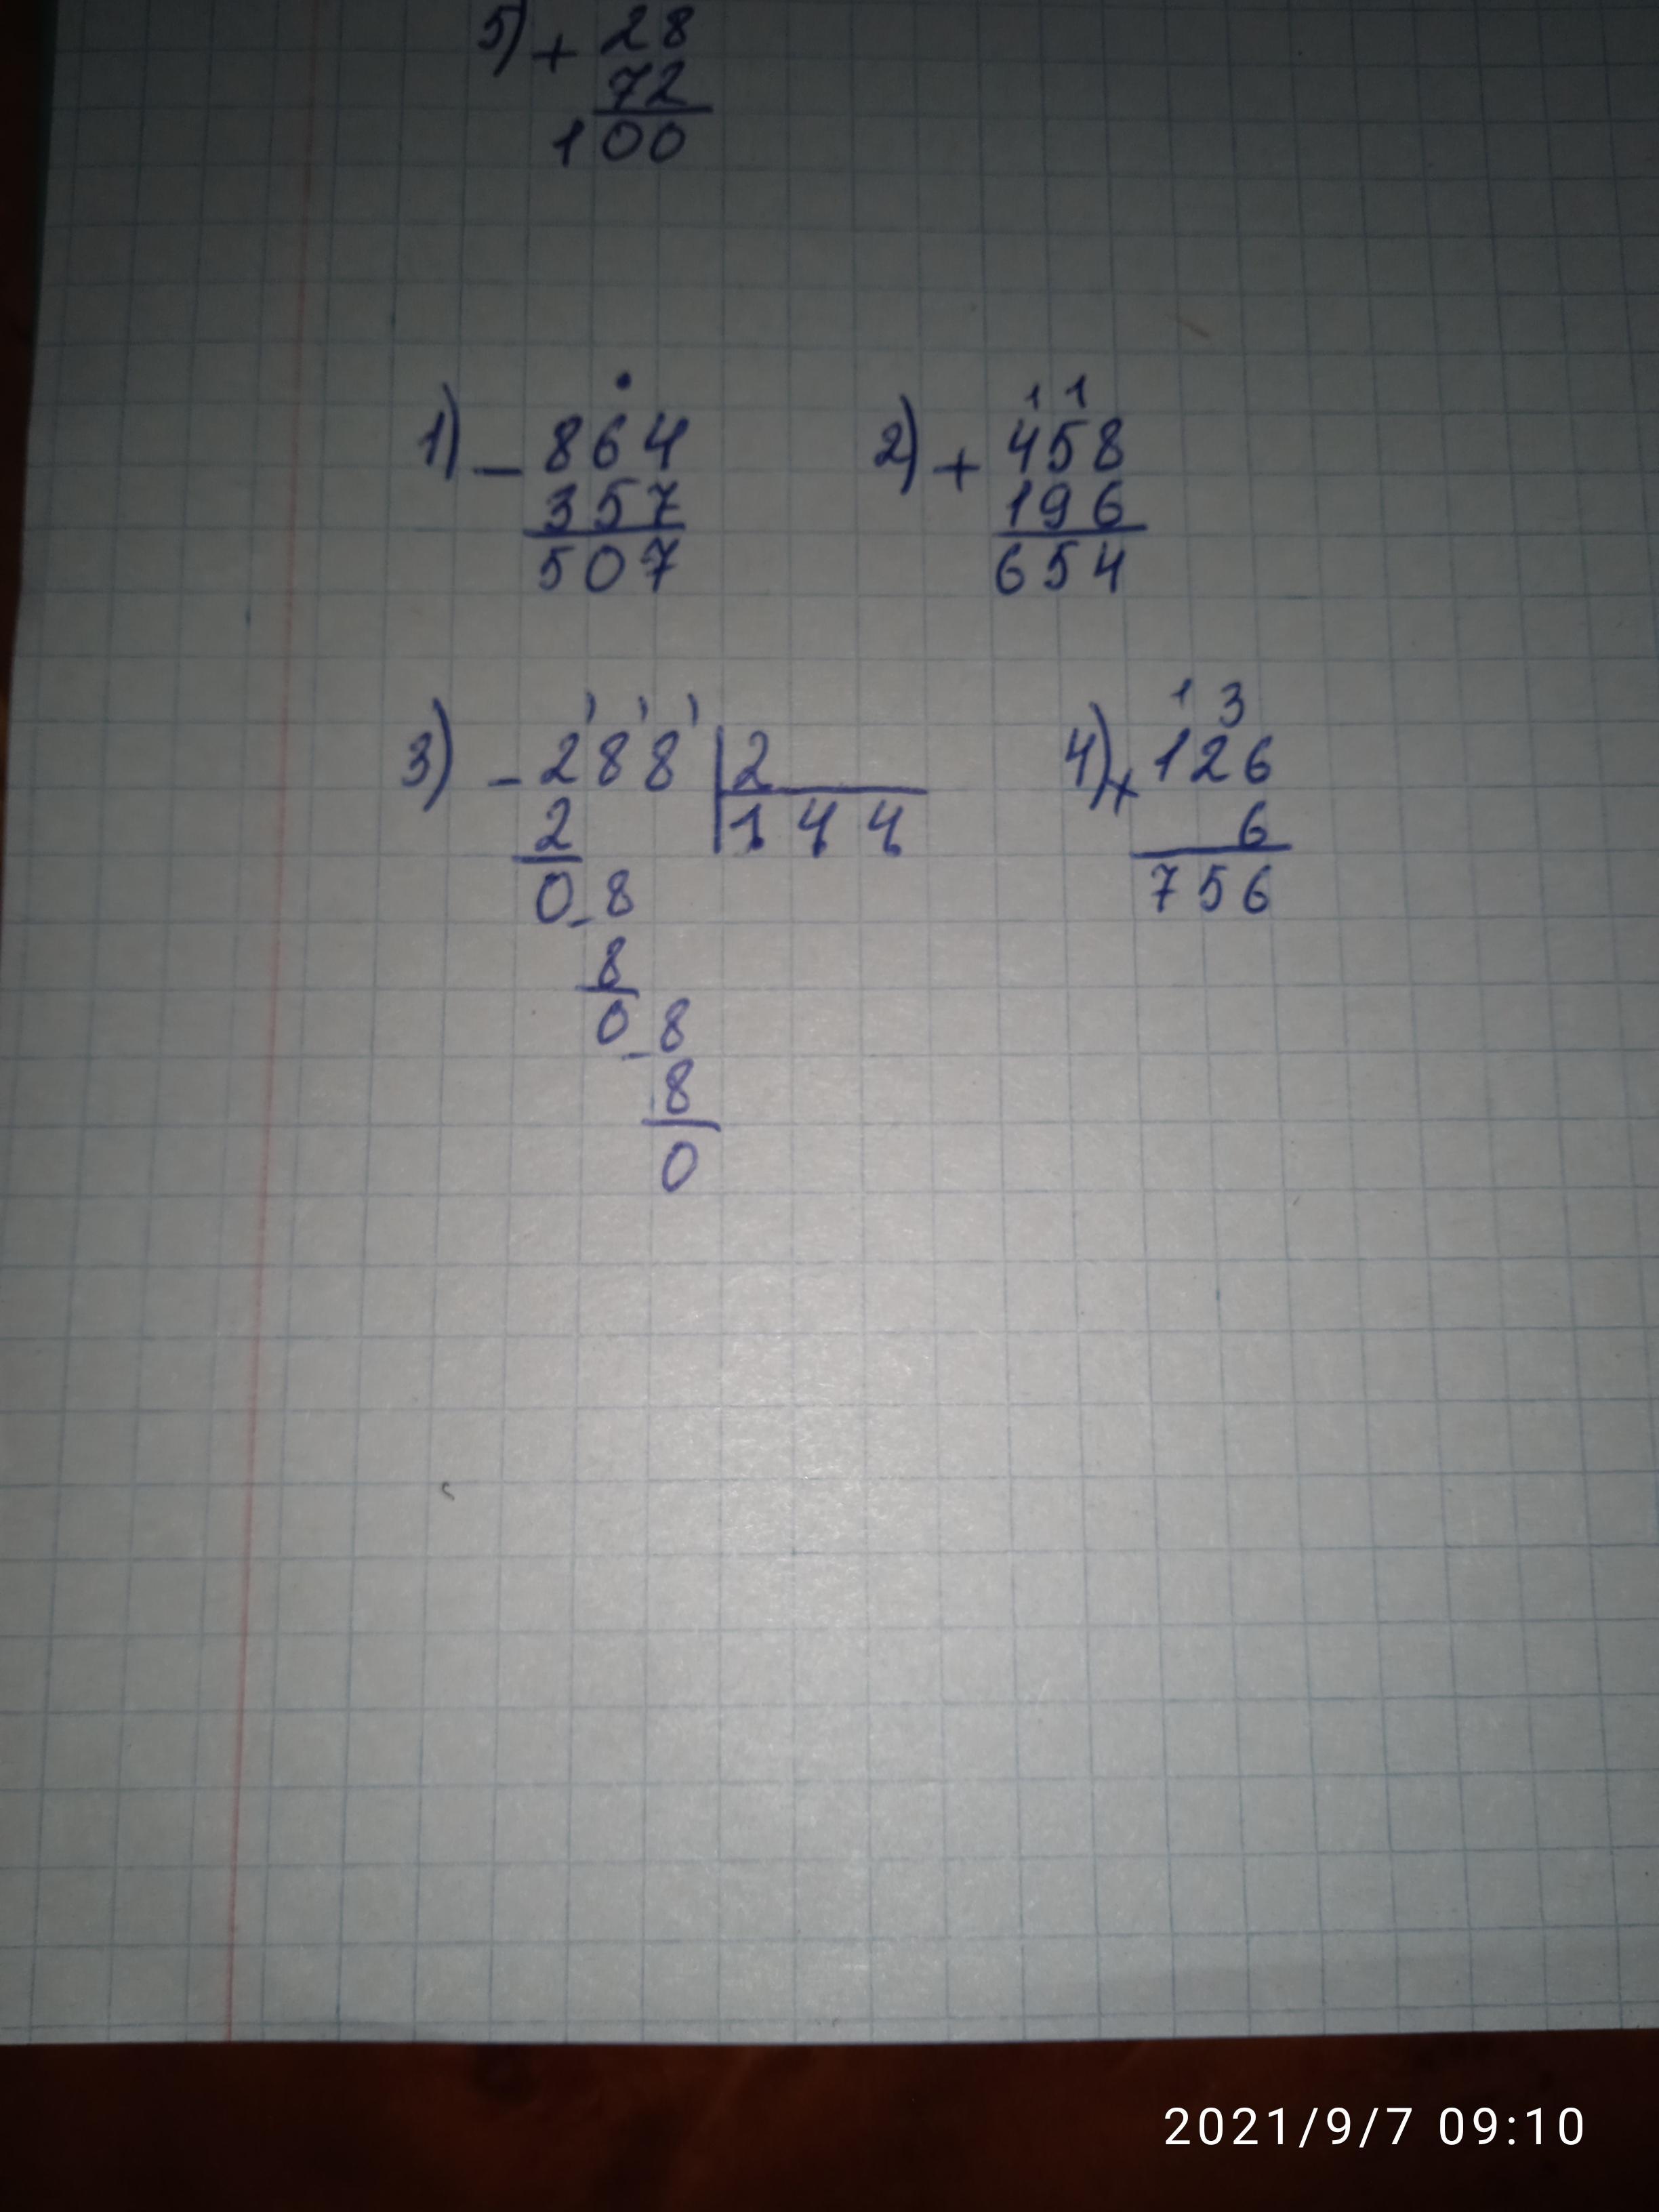 5) + 28
72
100
1) - 864
357
507
2) + 458
196
654
3) - 288 | 2
2 | 144
0 - 8
8
0 - 8
8
0
4) × 126
6
756
2021/9/7 09:10